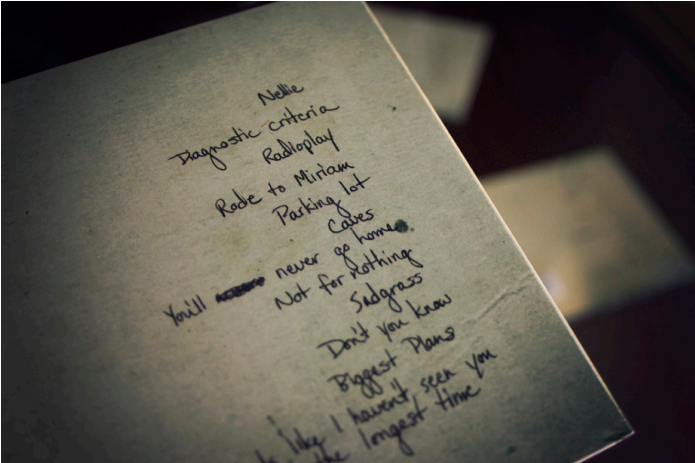 Nellie
Diagnostic criteria
Radioplay
Rode to Miriam
Parking lot
Caves
You'll never go home
Not for nothing
Sadgrass
Don't you know
Biggest Plans
like I haven't seen you
the longest time